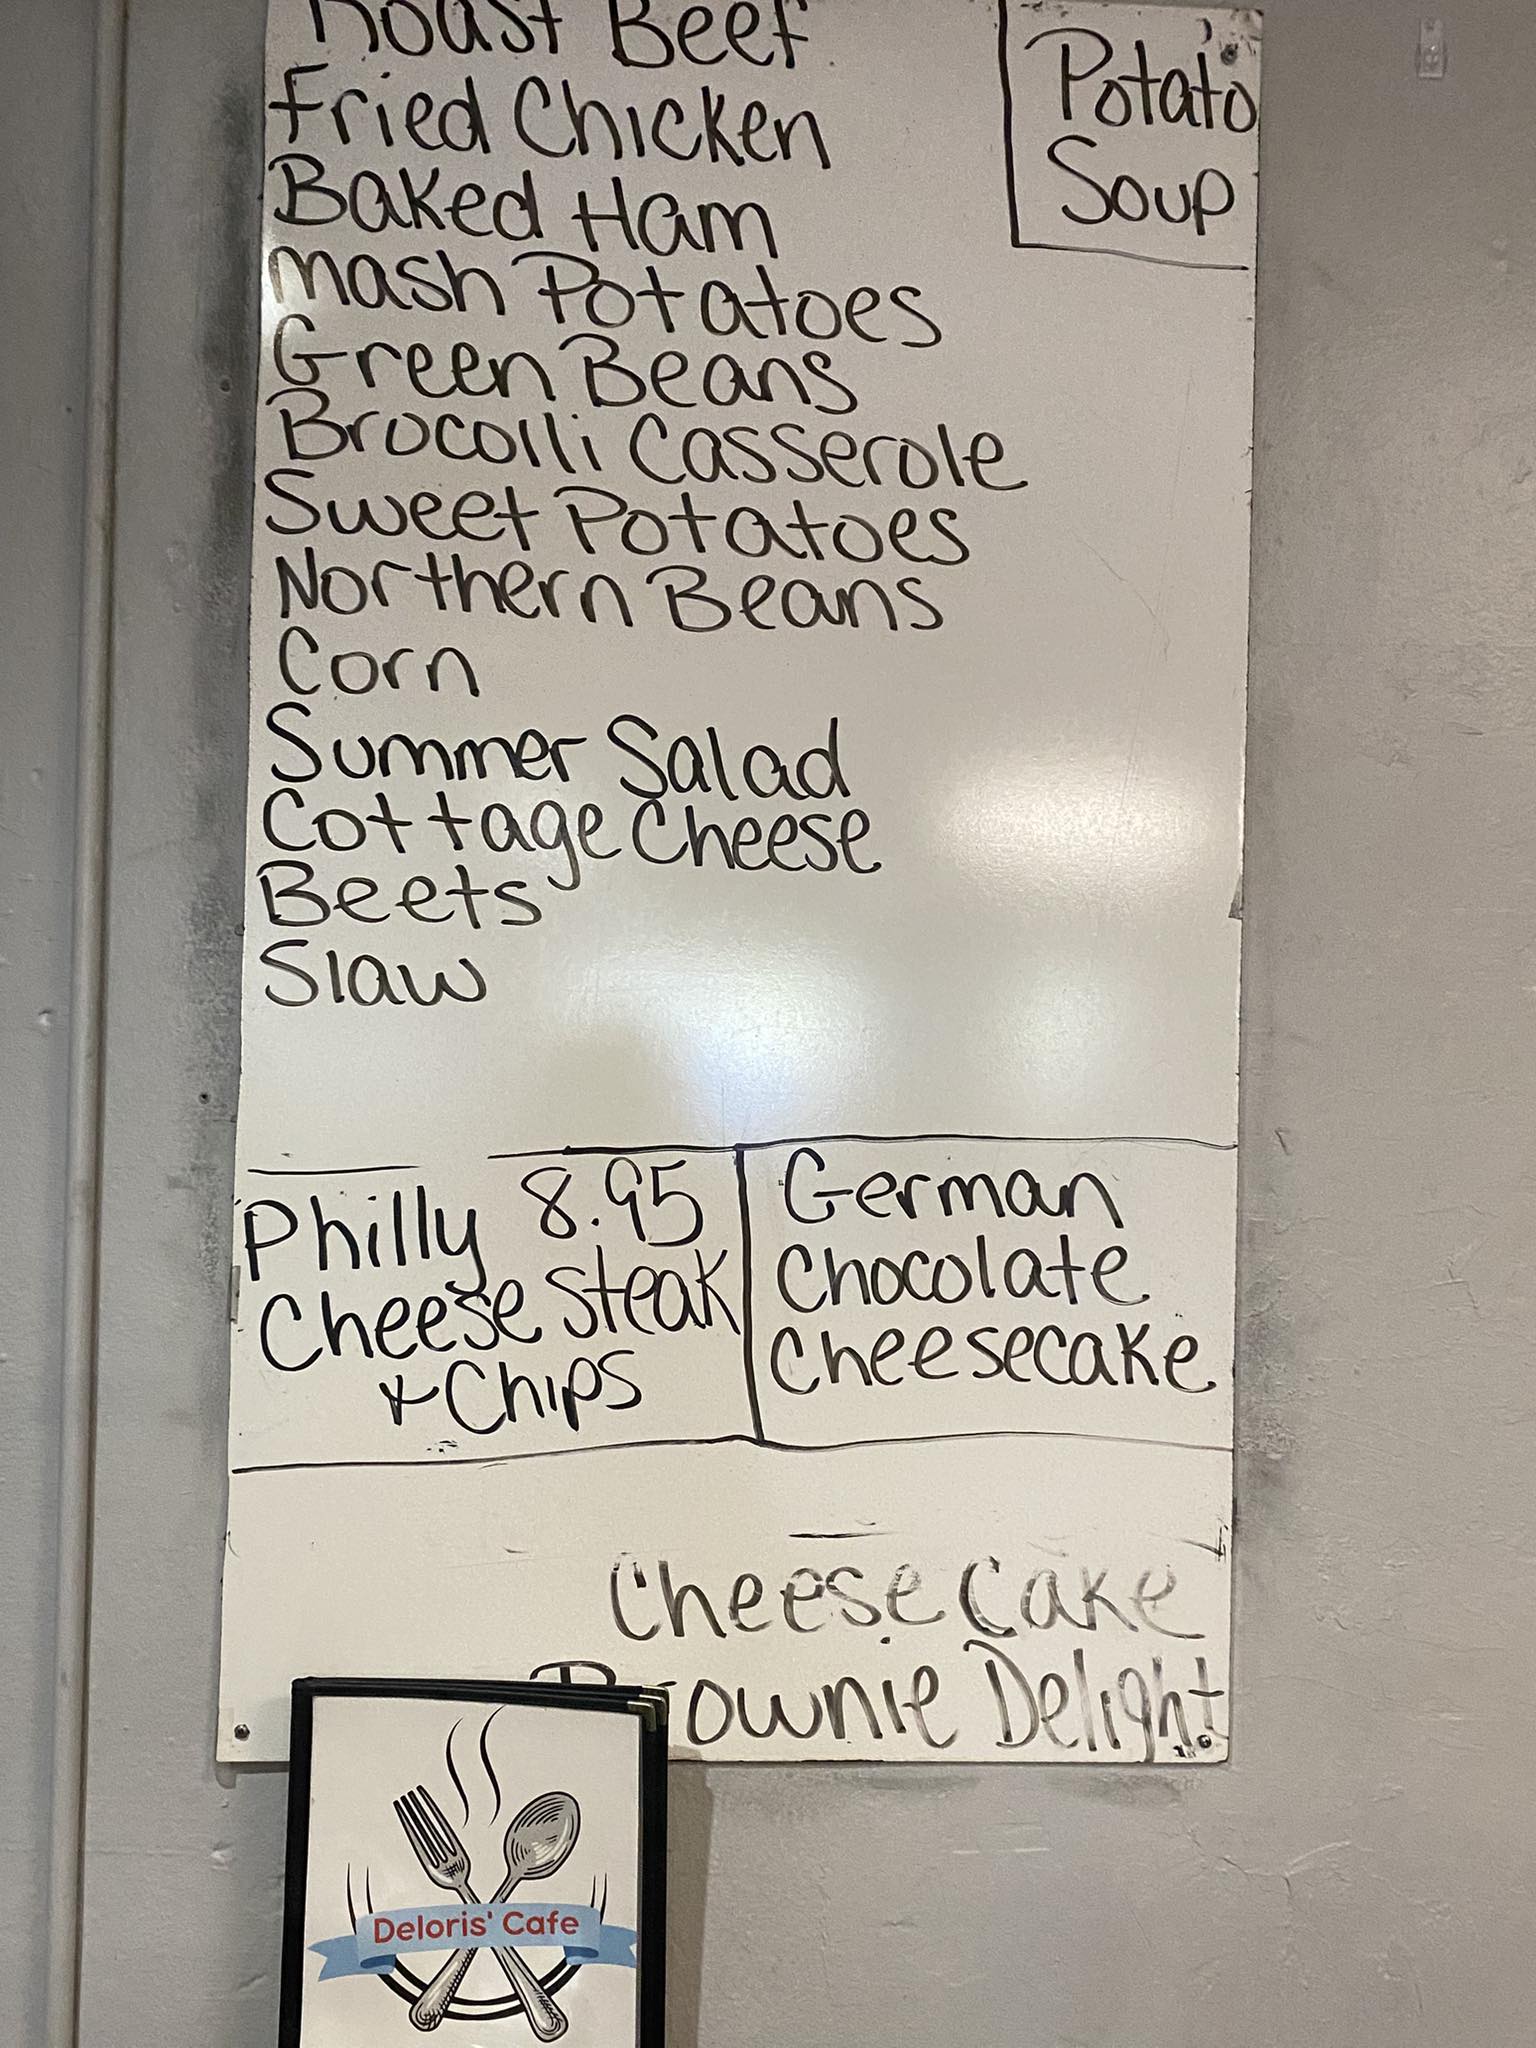 Roast Beef
Fried Chicken
Baked Ham
Mash Potatoes
Green Beans
Brocolli Casserole
Sweet Potatoes
Northern Beans
Corn
Summer Salad
Cottage Cheese
Beets
Slaw
Potato
Soup
Philly 8.95
Cheese Steak
+ Chips
German
Chocolate
Cheesecake
Cheese Cake
Brownie Delight
Deloris' Cafe